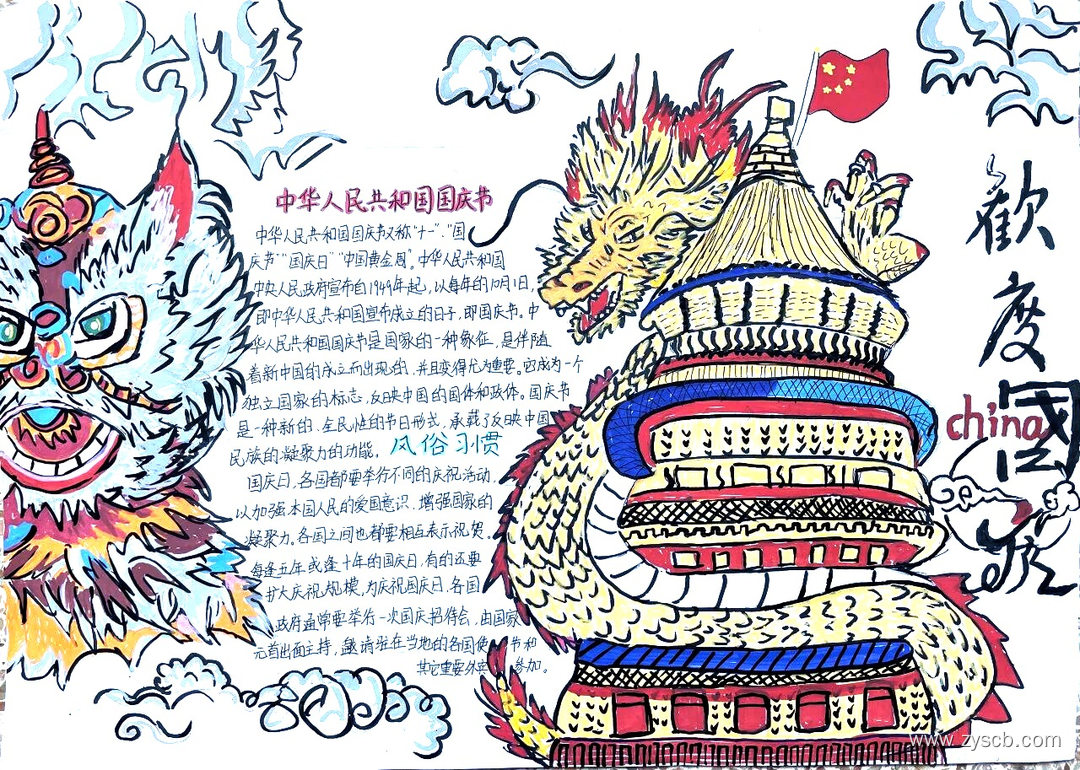 中华人民共和国国庆节
中华人民共和国国庆节又称"十一"、"国
庆节""国庆日""中国黄金周"。中华人民共和国
中央人民政府宣布自1949年起,以每年的10月1日,
即中华人民共和国宣布成立的日子,即国庆节。中
华人民共和国国庆节是国家的一种象征,是伴随
着新中国的成立而出现的,并且变得尤为重要。它成为一个
独立国家的标志,反映中国的国体和政体。国庆节
是一种新的、全民性的节日形式,承载了反映中国
民族的凝聚力的功能。
风俗习惯
国庆日,各国都要举行不同的庆祝活动,
以加强本国人民的爱国意识,增强国家的
凝聚力。各国之间也都要相互表示祝贺。
每逢五年或逢十年的国庆日,有的还要
扩大庆祝规模,为庆祝国庆日,各国
政府通常要举行一次国庆招待会,由国家
元首出面主持,邀请驻在当地的各国使节和
其它重要外宾参加。
歡度國慶
china
www.zyscb.com